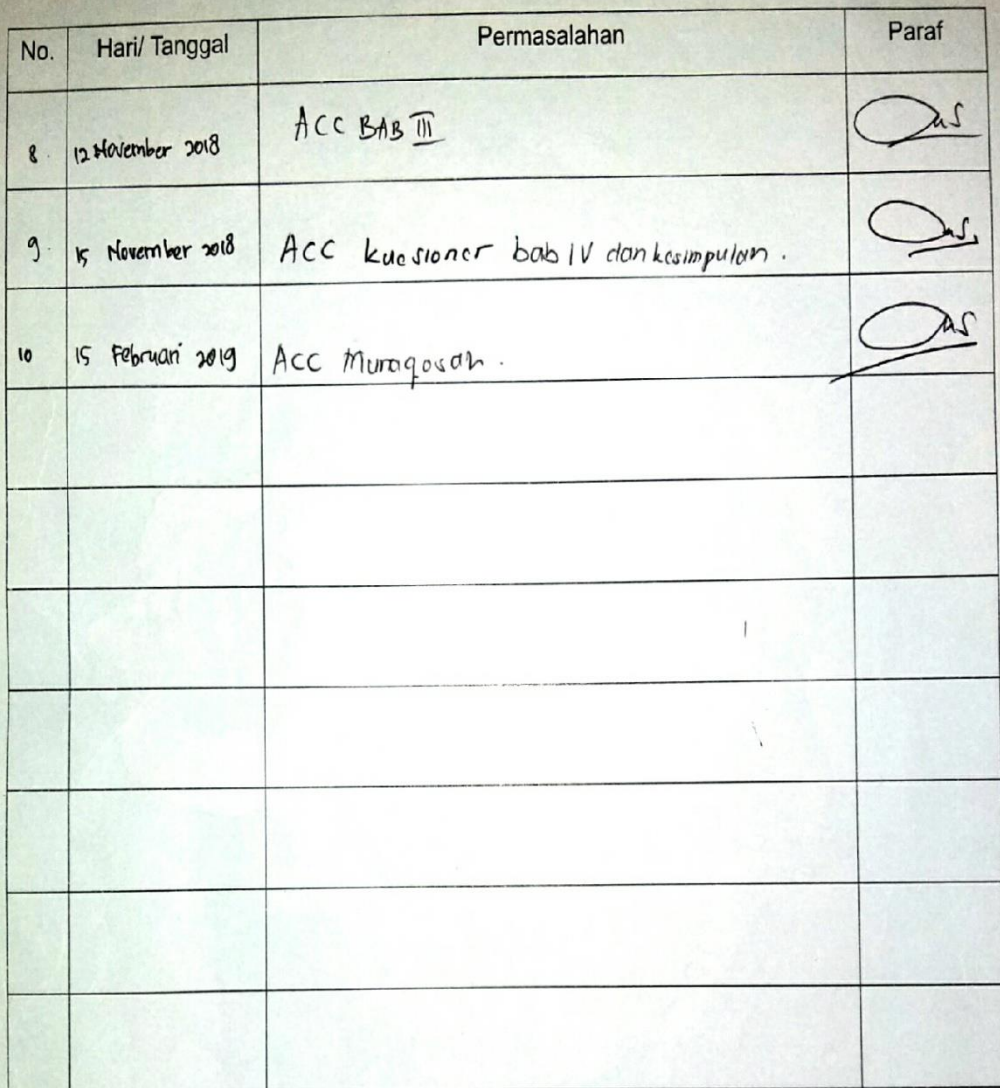 No. Hari/ Tanggal Permasalahan Paraf
8. 12 November 2018 ACC BAB III
9. 15 November 2018 ACC kuesioner bab IV dan kesimpulan.
10 15 Februari 2019 ACC Muraqosah.